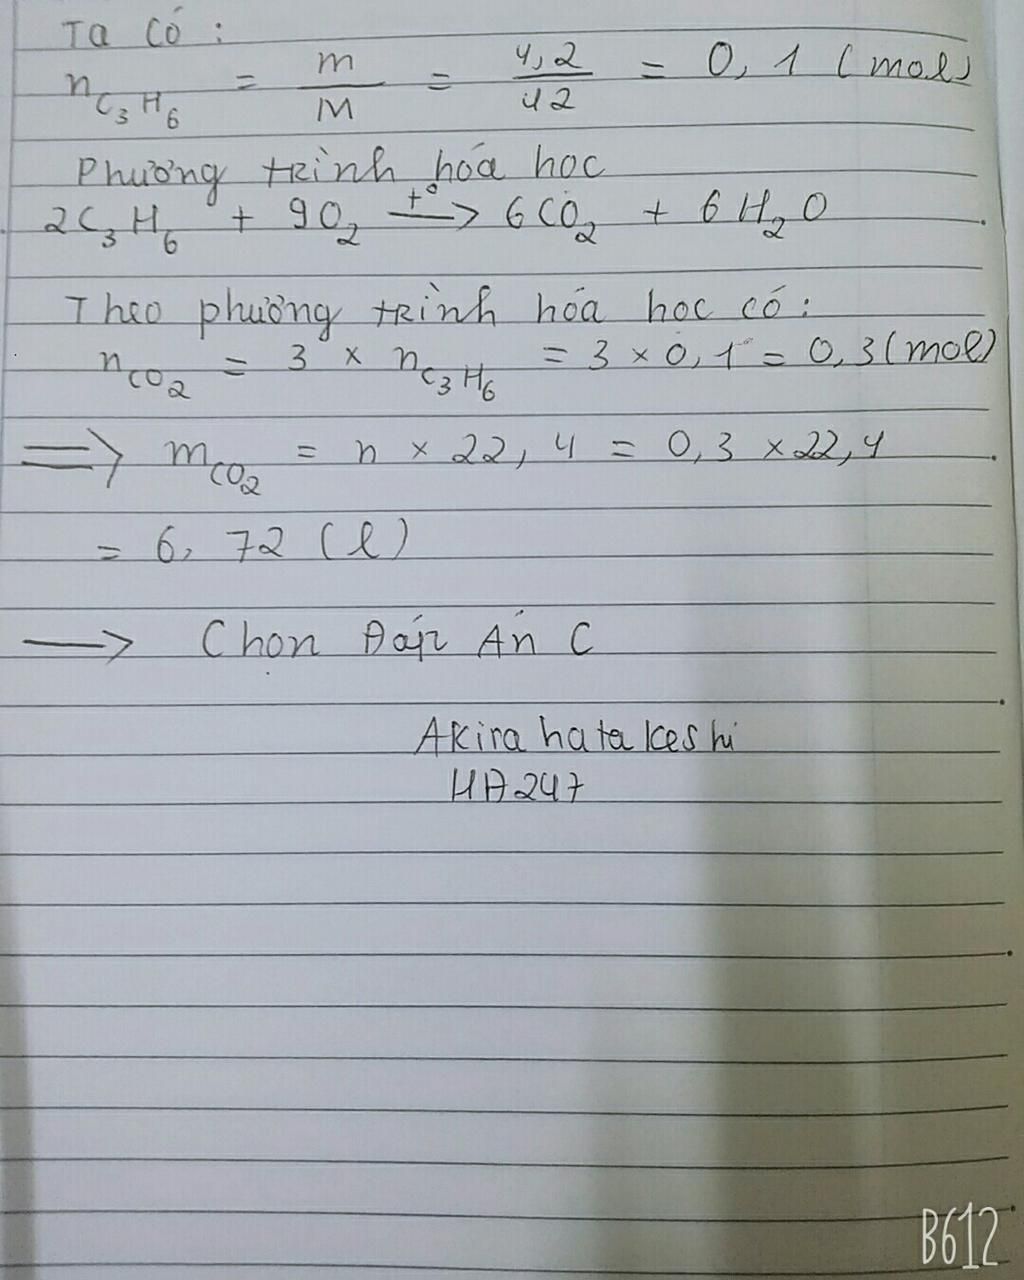 Ta có:
n C₃H₆ = m/M = 4,2/42 = 0,1 (mol)
Phương trình hóa học
2C₃H₆ + 9O₂ t°→ 6CO₂ + 6H₂O
Theo phương trình hóa học có:
nCO₂ = 3 × nC₃H₆ = 3 × 0,1 = 0,3 (mol)
=> mCO₂ = n × 22,4 = 0,3 × 22,4
= 6,72 (l)
→ Chọn Đáp Án C
Akira hata keshi
HA247
B612